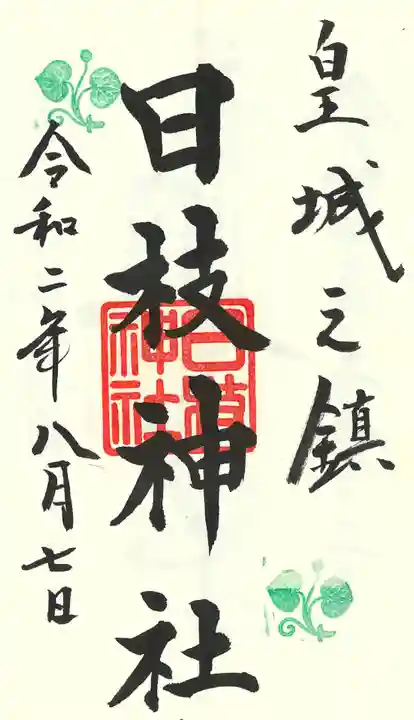 皇城之鎮
日枝神社
日枝神社
令和二年八月七日